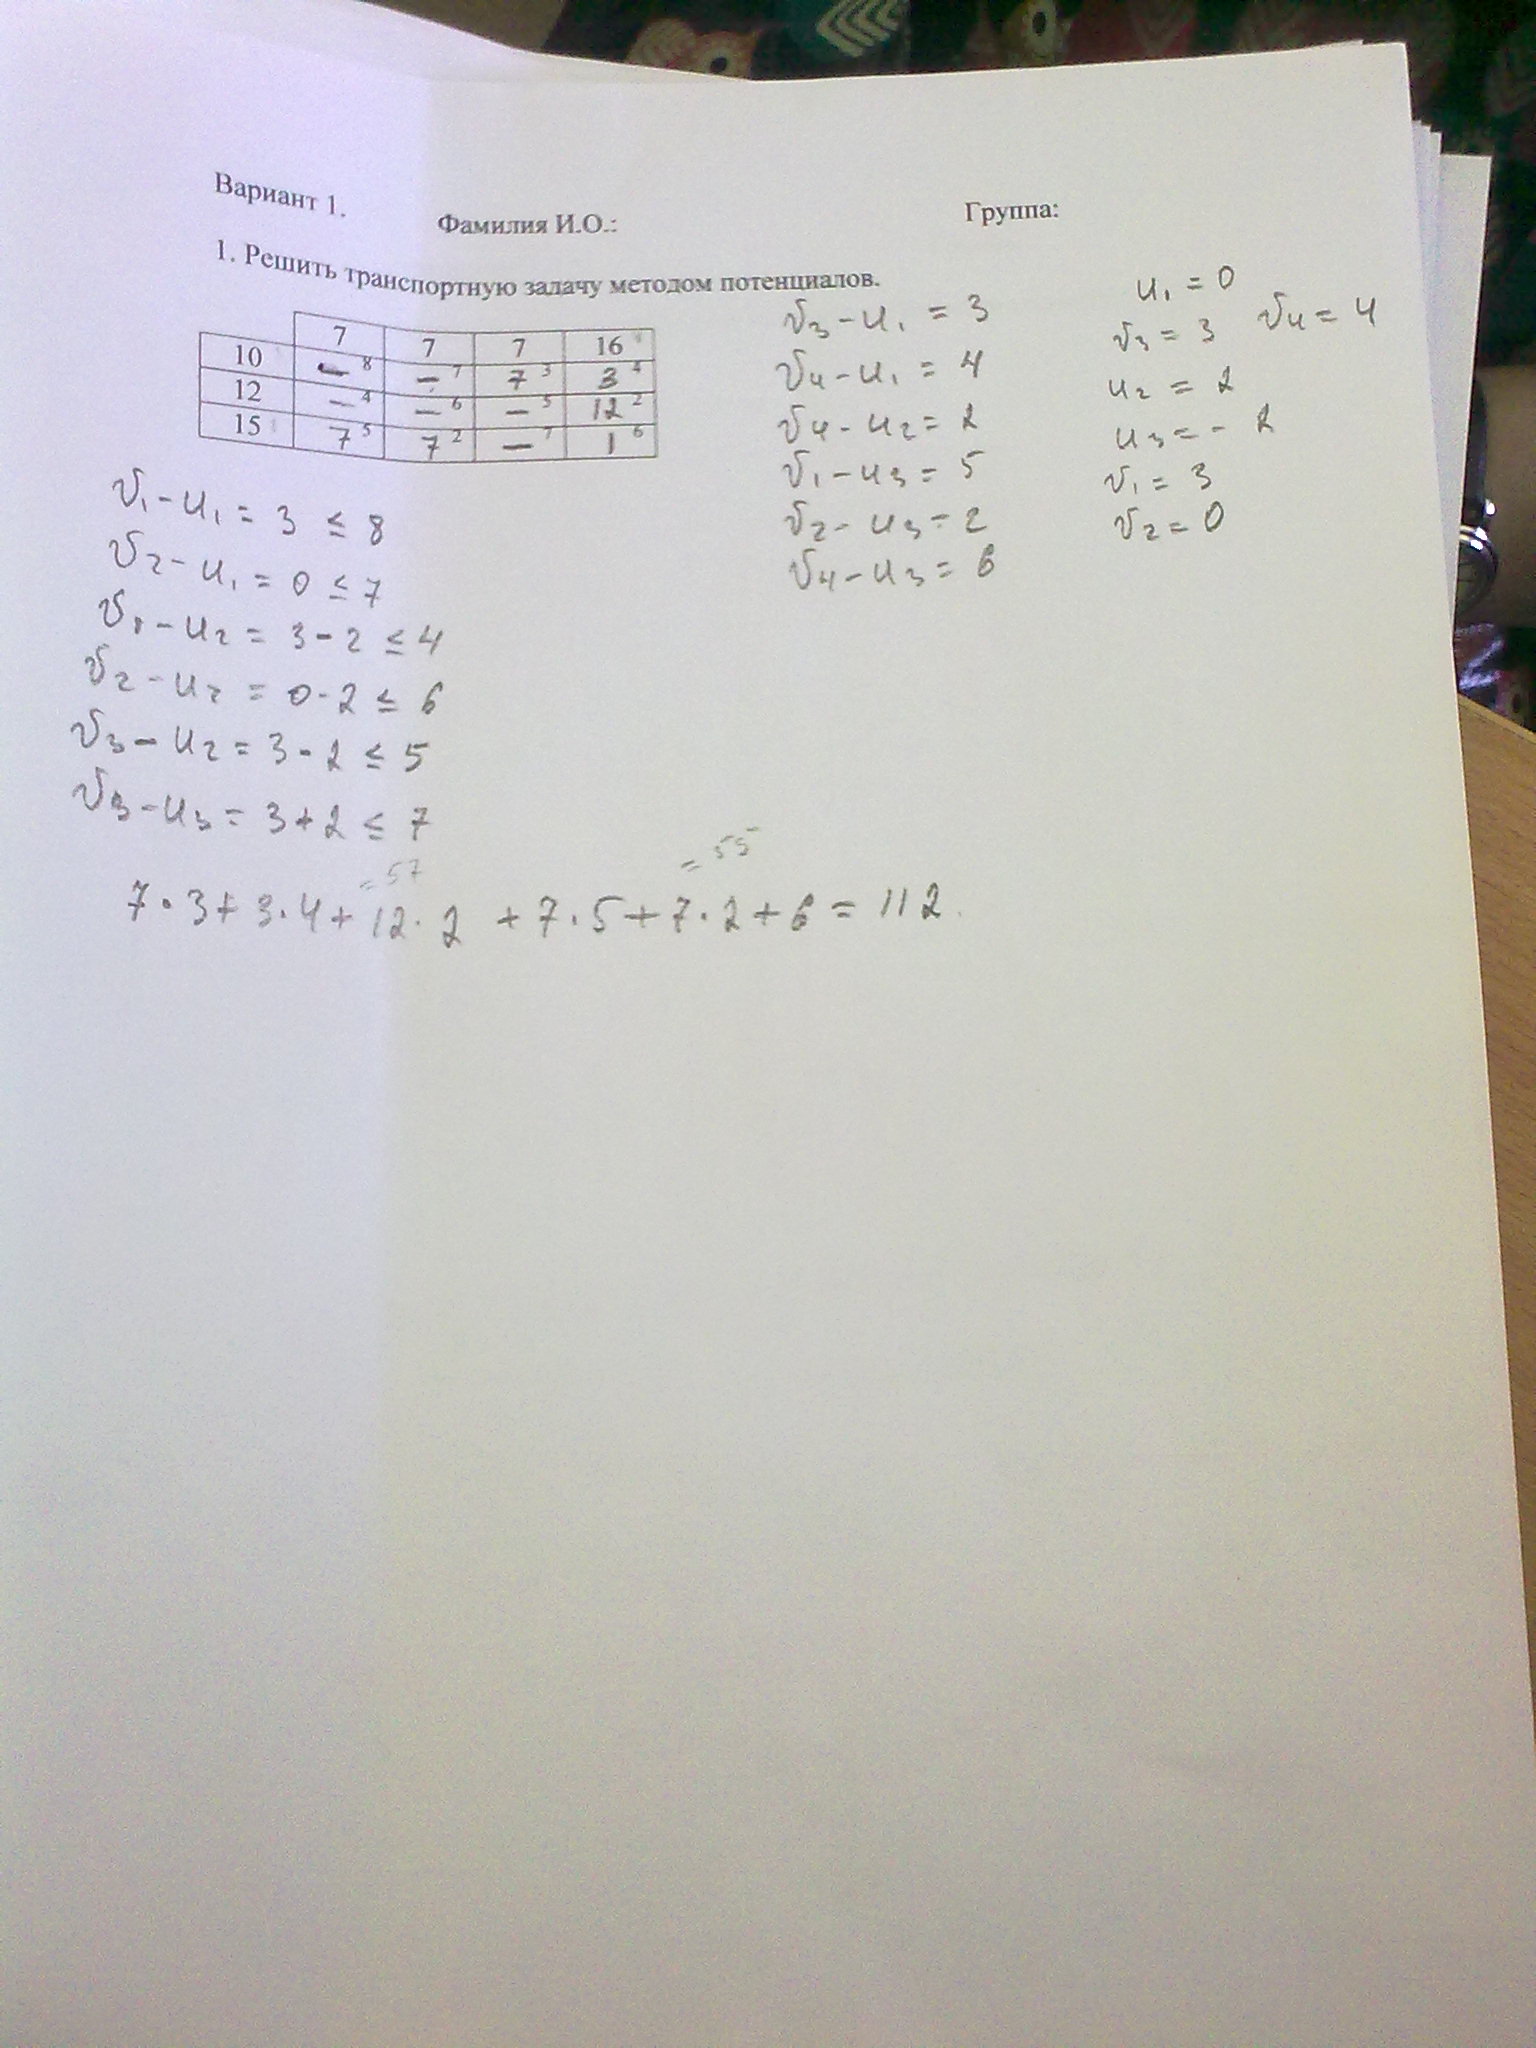 Вариант 1.
Фамилия И.О.: Группа:
1. Решить транспортную задачу методом потенциалов.
7 7 7 16
10 – 8 – 7 7 3 3 4
12 – 4 – 6 – 5 12 2
15 7 5 7 2 – 7 1 6
v₃ - u₁ = 3
v₄ - u₁ = 4
v₄ - u₂ = 2
v₁ - u₃ = 5
v₂ - u₃ = 2
v₄ - u₃ = 6
u₁ = 0
v₃ = 3 v₄ = 4
u₂ = 2
u₃ = - 2
v₁ = 3
v₂ = 0
v₁ - u₁ = 3 ≤ 8
v₂ - u₁ = 0 ≤ 7
v₁ - u₂ = 3 - 2 ≤ 4
v₂ - u₂ = 0 - 2 ≤ 6
v₃ - u₂ = 3 - 2 ≤ 5
v₃ - u₃ = 3 + 2 ≤ 7
= 57 = 55
7·3 + 3·4 + 12·2 + 7·5 + 7·2 + 6 = 112.